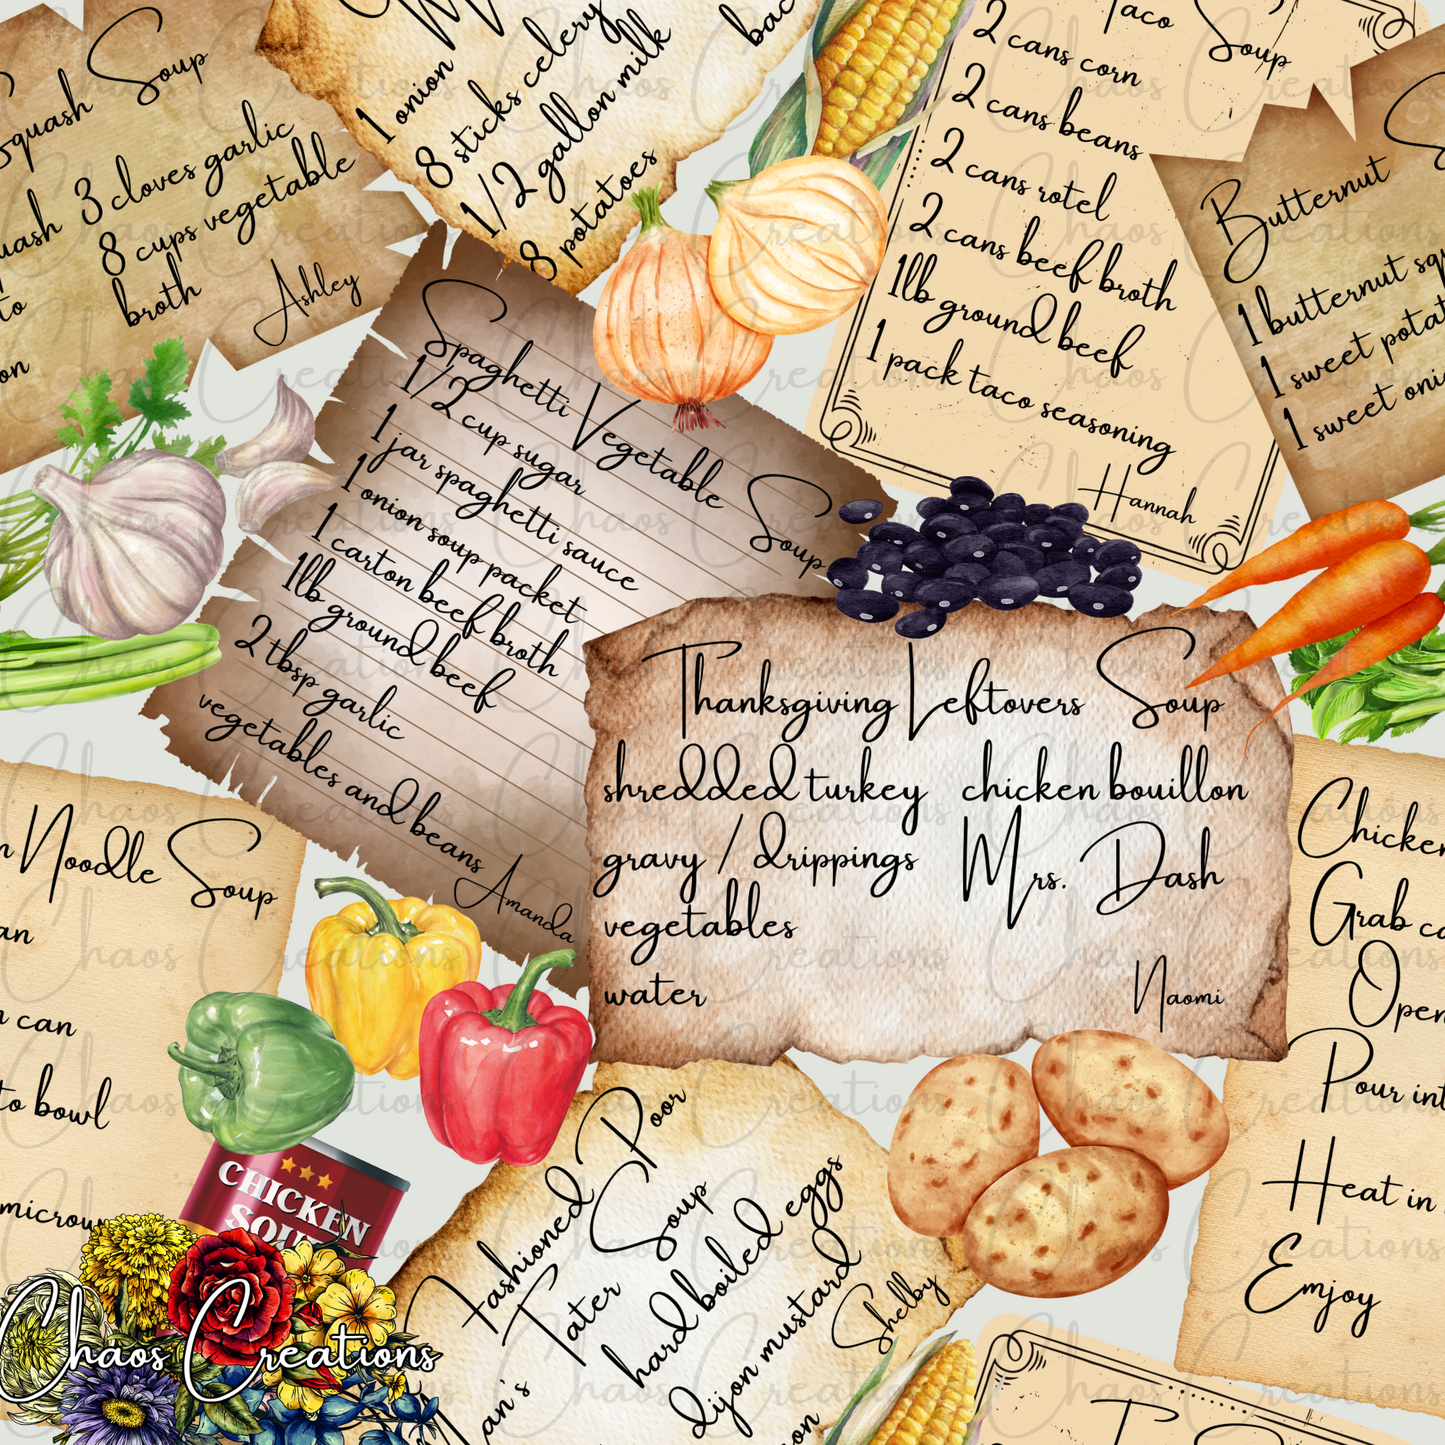 Squash Soup
3 cloves garlic
8 cups vegetable
broth
to
Ashley
1 onion
8 sticks celery
1/2 gallon milk
8 potatoes
Taco Soup
2 cans corn
2 cans beans
2 cans rotel
2 cans beef broth
1lb ground beef
1 pack taco seasoning
Hannah
Butternut
1 butternut
1 sweet
1 sweet
Spaghetti Vegetable Soup
1/2 cup sugar
1 jar spaghetti sauce
1 onion soup packet
1 carton beef broth
1lb ground beef
2 tbsp garlic
vegetables and beans
Amanda
Thanksgiving Leftovers Soup
shredded turkey chicken bouillon
gravy / drippings Mrs. Dash
vegetables
water
Naomi
Noodle Soup
can
to bowl
Chicken
Grab
Open
Pour
Heat in
Emjoy
CHICKEN
SOUP
Fashioned Poor
Tater Soup
hard boiled eggs
dijon mustard
Shelby
Chaos Creations